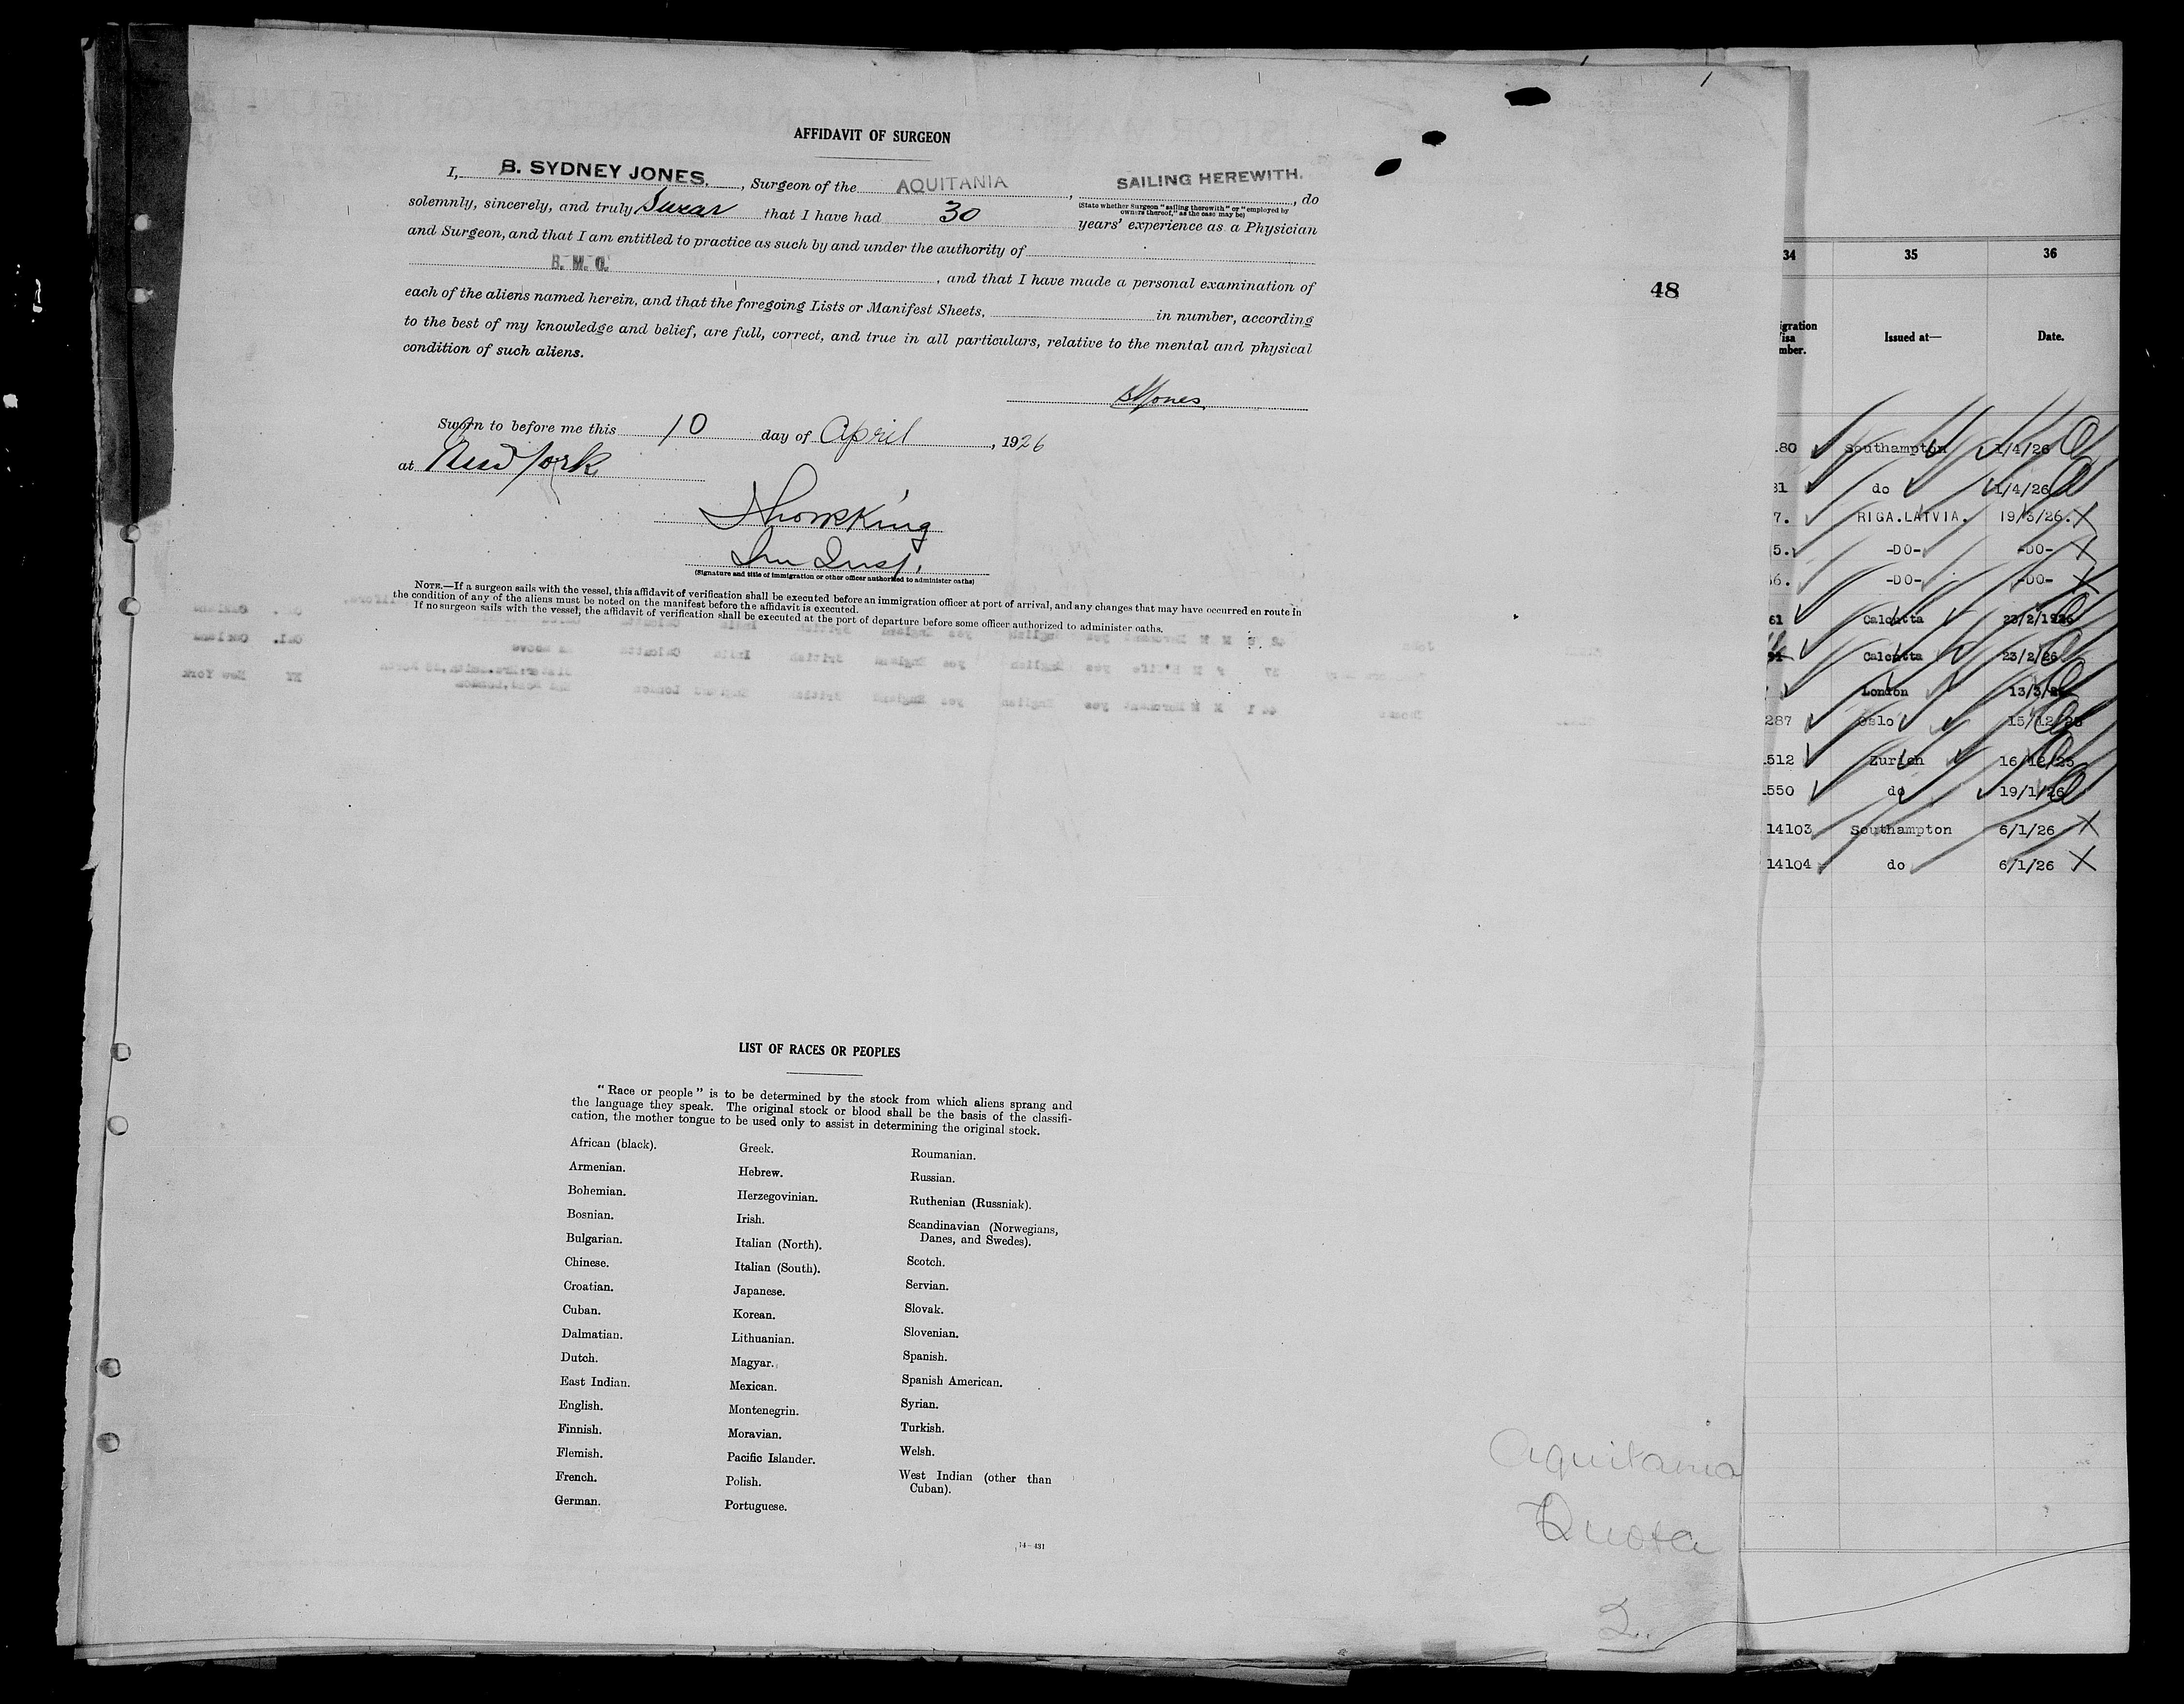 AFFIDAVIT OF SURGEON
I, B. SYDNEY JONES, , Surgeon of the AQUITANIA , SAILING HEREWITH. , do
(State whether Surgeon "sailing therewith" or "employed by owners thereof," as the case may be)
solemnly, sincerely, and truly Swear that I have had 30 years' experience as a Physician
and Surgeon, and that I am entitled to practice as such by and under the authority of
, and that I have made a personal examination of
each of the aliens named herein, and that the foregoing Lists or Manifest Sheets, in number, according
to the best of my knowledge and belief, are full, correct, and true in all particulars, relative to the mental and physical
condition of such aliens.
Sworn to before me this 10 day of April , 1926
at New York
(Signature and title of immigration or other officer authorized to administer oaths)
NOTE.—If a surgeon sails with the vessel, this affidavit of verification shall be executed before an immigration officer at port of arrival, and any changes that may have occurred en route in
the condition of any of the aliens must be noted on the manifest before the affidavit is executed.
If no surgeon sails with the vessel, the affidavit of verification shall be executed at the port of departure before some officer authorized to administer oaths.
48
LIST OF RACES OR PEOPLES
"Race or people" is to be determined by the stock from which aliens sprang and
the language they speak. The original stock or blood shall be the basis of the classifi-
cation, the mother tongue to be used only to assist in determining the original stock.
African (black).
Armenian.
Bohemian.
Bosnian.
Bulgarian.
Chinese.
Croatian.
Cuban.
Dalmatian.
Dutch.
East Indian.
English.
Finnish.
Flemish.
French.
German.
Greek.
Hebrew.
Herzegovinian.
Irish.
Italian (North).
Italian (South).
Japanese.
Korean.
Lithuanian.
Magyar.
Mexican.
Montenegrin.
Moravian.
Pacific Islander.
Polish.
Portuguese.
Roumanian.
Russian.
Ruthenian (Russniak).
Scandinavian (Norwegians,
Danes, and Swedes).
Scotch.
Servian.
Slovak.
Slovenian.
Spanish.
Spanish American.
Syrian.
Turkish.
Welsh.
West Indian (other than
Cuban).
14—431
Aquitania
Quota
2
34 35 36
Issued at— Date.
Southampton 1/4/26
do 1/4/26
RIGA.LATVIA. 19/3/26.
-DO- -DO-
-DO- -DO-
61 Calcutta 23/2/1926
Calcutta 23/2/26
London 13/3/26
287 Oslo 15/12/25
512 Zurich 16/12/25
550 do 19/1/26
14103 Southampton 6/1/26
14104 do 6/1/26